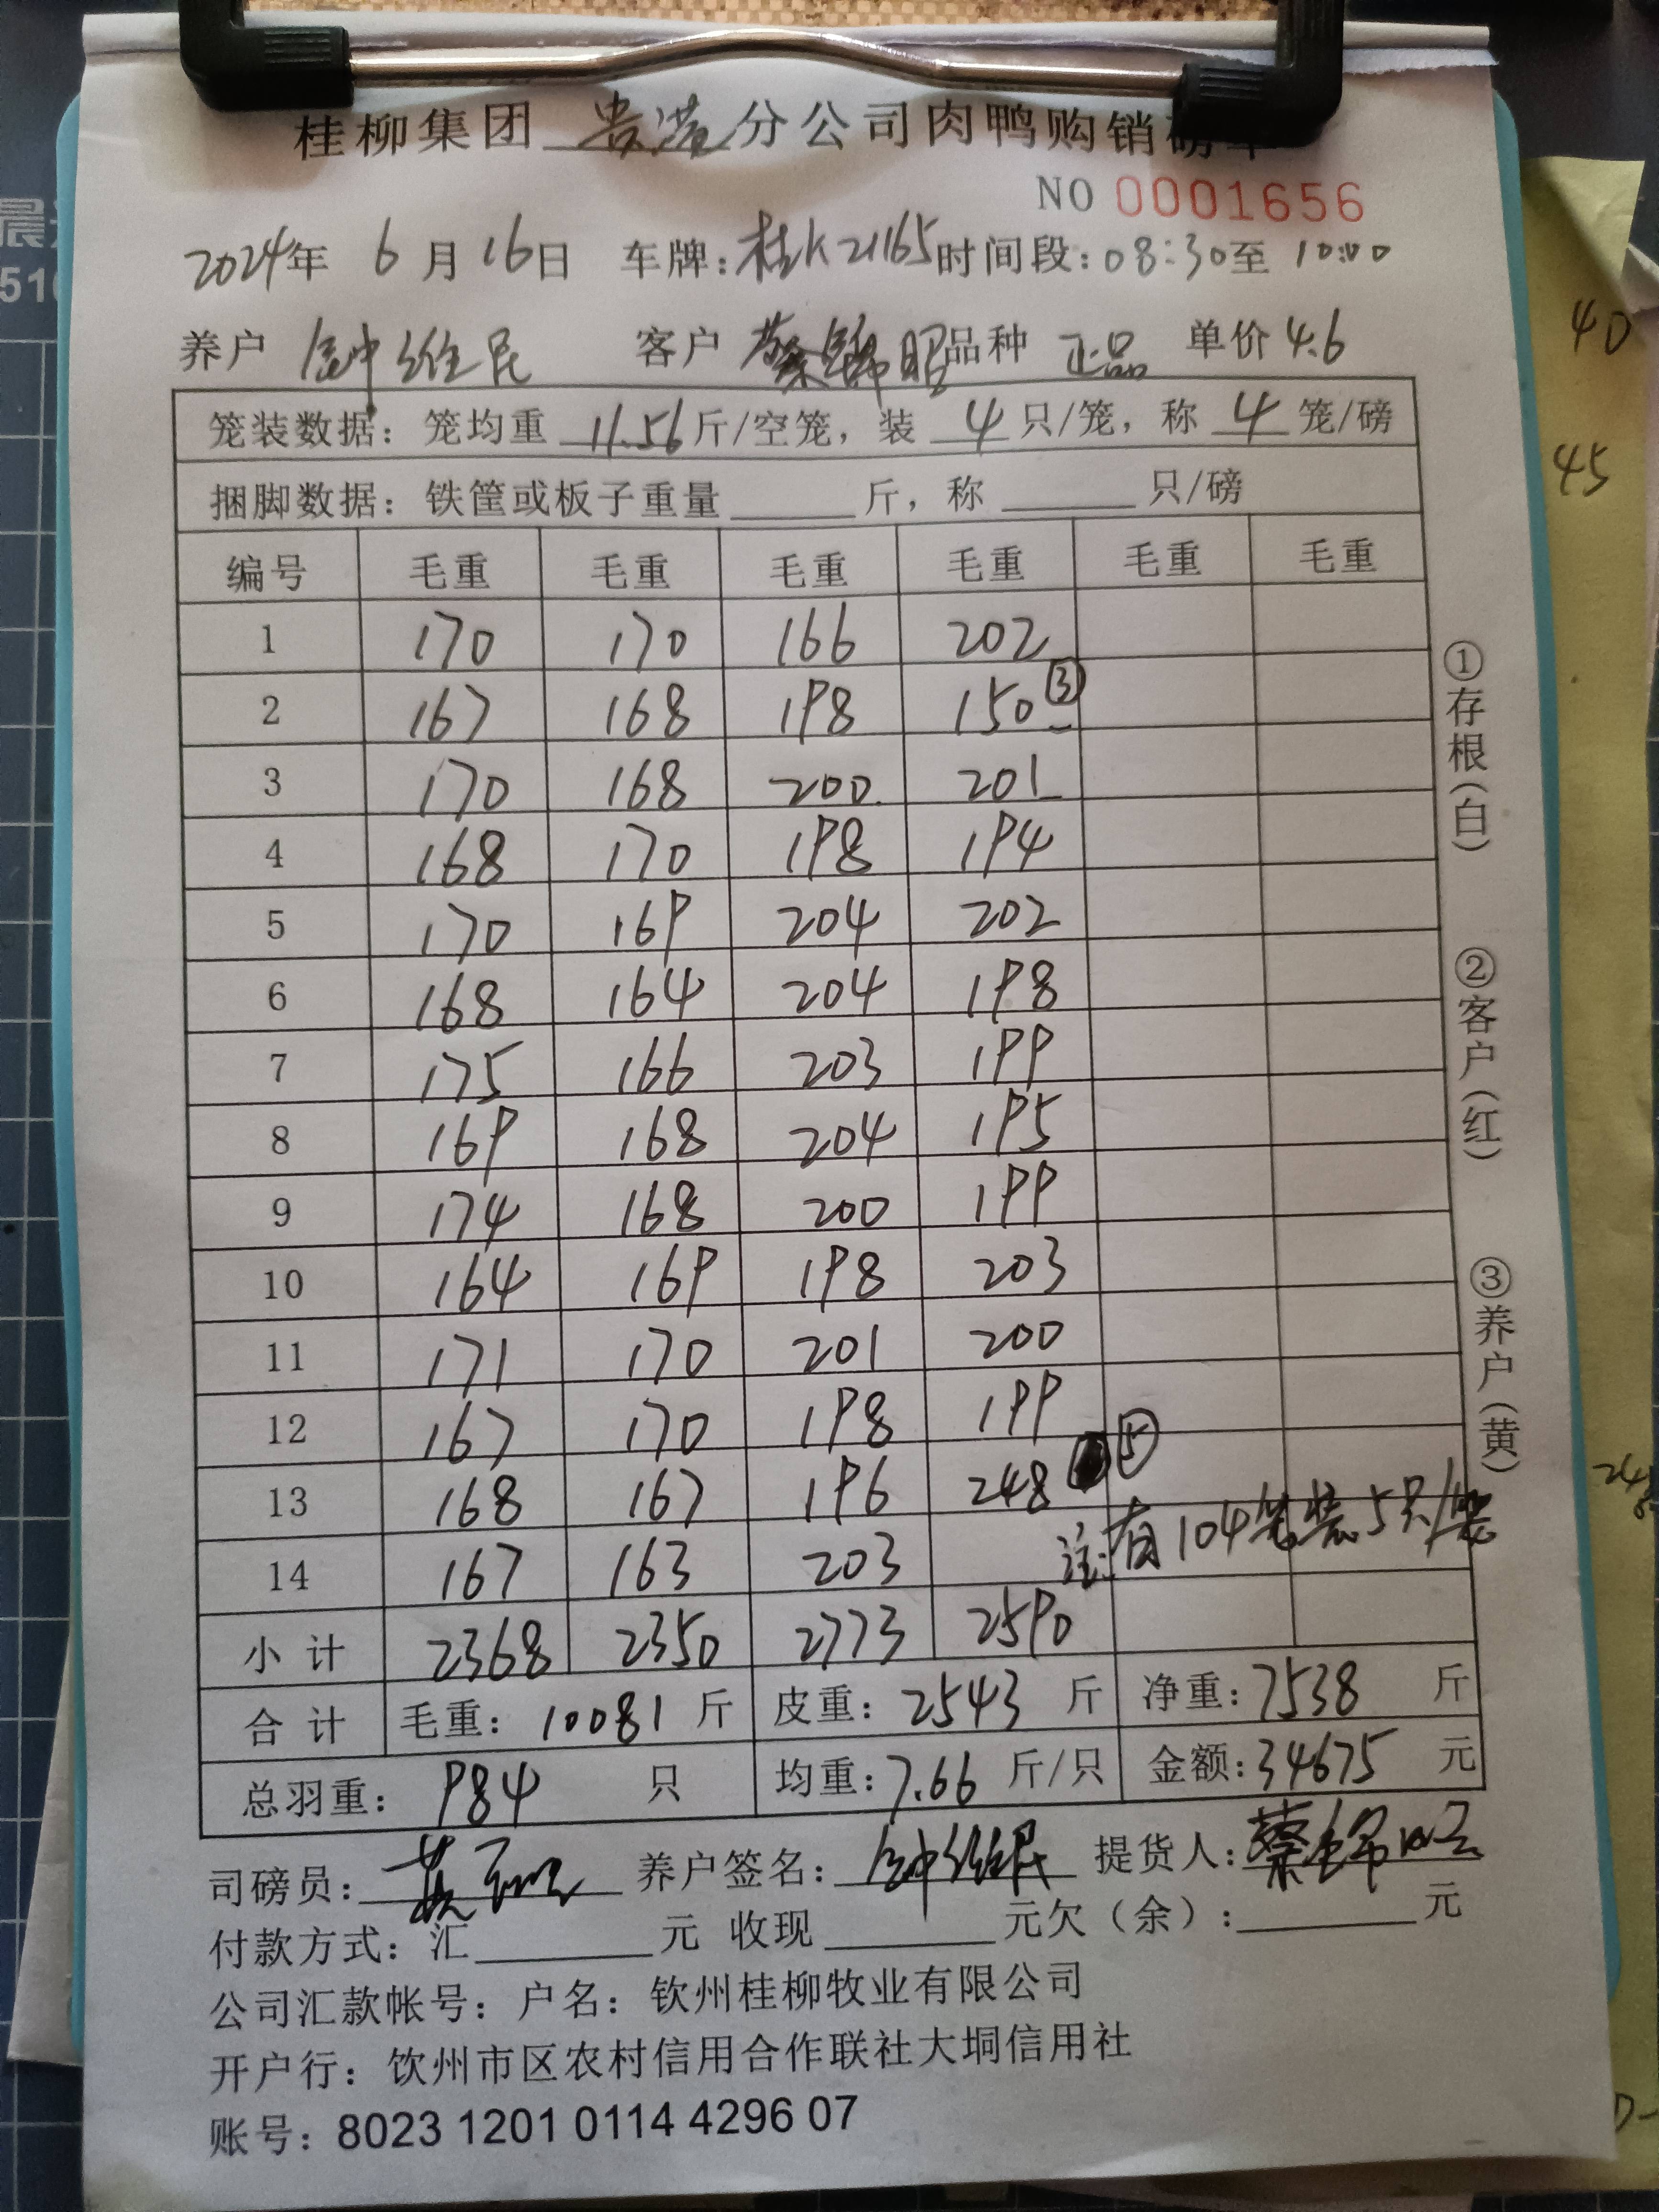 桂柳集团 贵港 分公司肉鸭购销磅单
NO 0001656
2024年 6月16日 车牌:桂K21165 时间段:08:30至10:00
养户 钟维民 客户 蔡锦昭 品种 正品 单价 4.6
笼装数据: 笼均重 11.56 斤/空笼, 装 4 只/笼, 称 4 笼/磅
捆脚数据: 铁筐或板子重量 斤, 称 只/磅
编号 毛重 毛重 毛重 毛重 毛重 毛重
1 170 170 166 202
2 167 168 198 150 ③
3 170 168 200 201
4 168 170 198 194
5 170 169 204 202
6 168 164 204 198
7 175 166 203 199
8 169 168 204 195
9 174 168 200 199
10 164 169 198 203
11 171 170 201 200
12 167 170 198 199
13 168 167 196 248 ⑤
注:有104笼装5只/笼
14 167 163 203
小计 2368 2350 2773 2590
合计 毛重: 10081 斤 皮重: 2543 斤 净重: 7538 斤
总羽重: 984 只 均重: 7.66 斤/只 金额: 34675 元
司磅员: 养户签名: 钟维民 提货人: 蔡锦昭
付款方式: 汇 元 收现 元欠(余): 元
公司汇款帐号: 户名: 钦州桂柳牧业有限公司
开户行: 钦州市区农村信用合作联社大垌信用社
账号: 8023 1201 0114 4296 07
①存根(白)
②客户(红)
③养户(黄)
晨
51
40
45